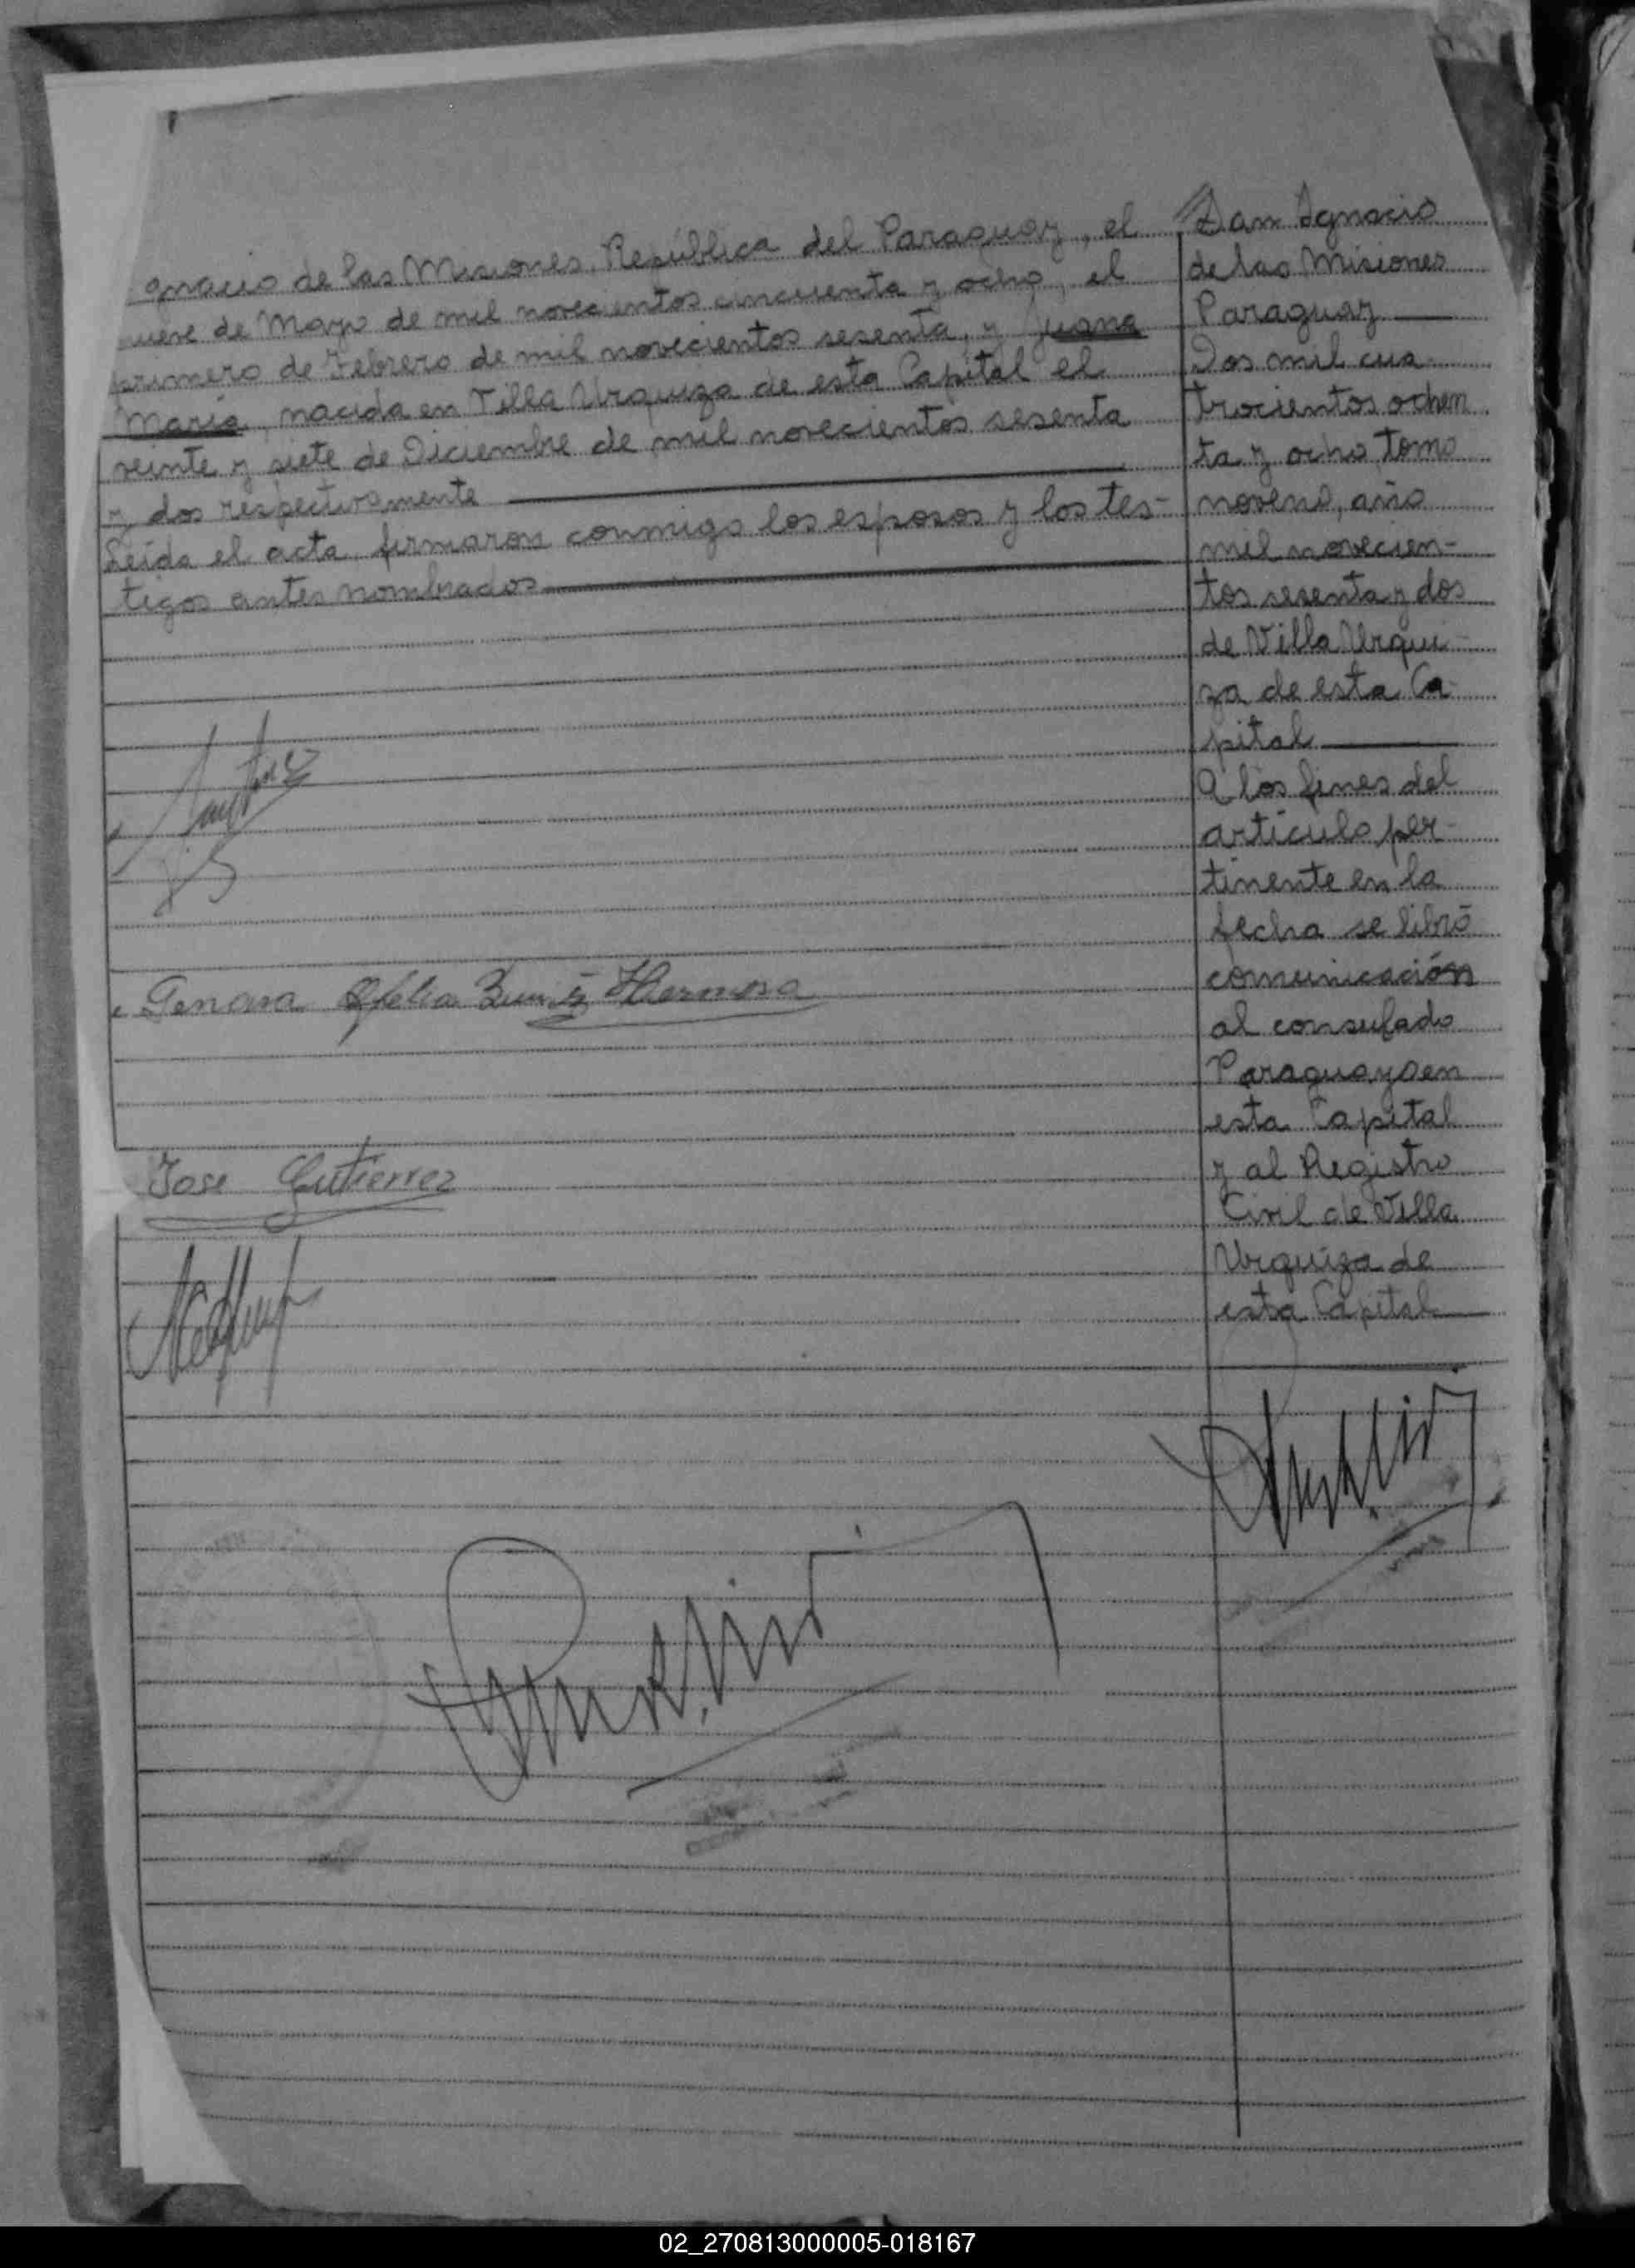 gnacio de las Misiones, República del Paraguay, el
nueve de Mayo de mil novecientos cincuenta y ocho, el
primero de Febrero de mil novecientos sesenta, y Juana
María, nacida en Villa Urquiza de esta Capital el
veinte y siete de Diciembre de mil novecientos sesenta
y dos respectivamente
Leída el acta, firmaron conmigo los esposos y los tes-
tigos antes nombrados
Genara Ofelia Hermosa
Jose Gutierrez
San Ignacio
de las Misiones
Paraguay
Dos mil cua
trocientos ochen
ta y ocho, tomo
noveno, año
mil novecien-
tos sesenta y dos
de Villa Urqui-
za de esta Ca-
pital
A los fines del
artículo per-
tinente en la
fecha se libró
comunicación
al consulado
Paraguayo en
esta Capital
y al Registro
Civil de Villa
Urquiza de
esta Capital
02_270813000005-018167